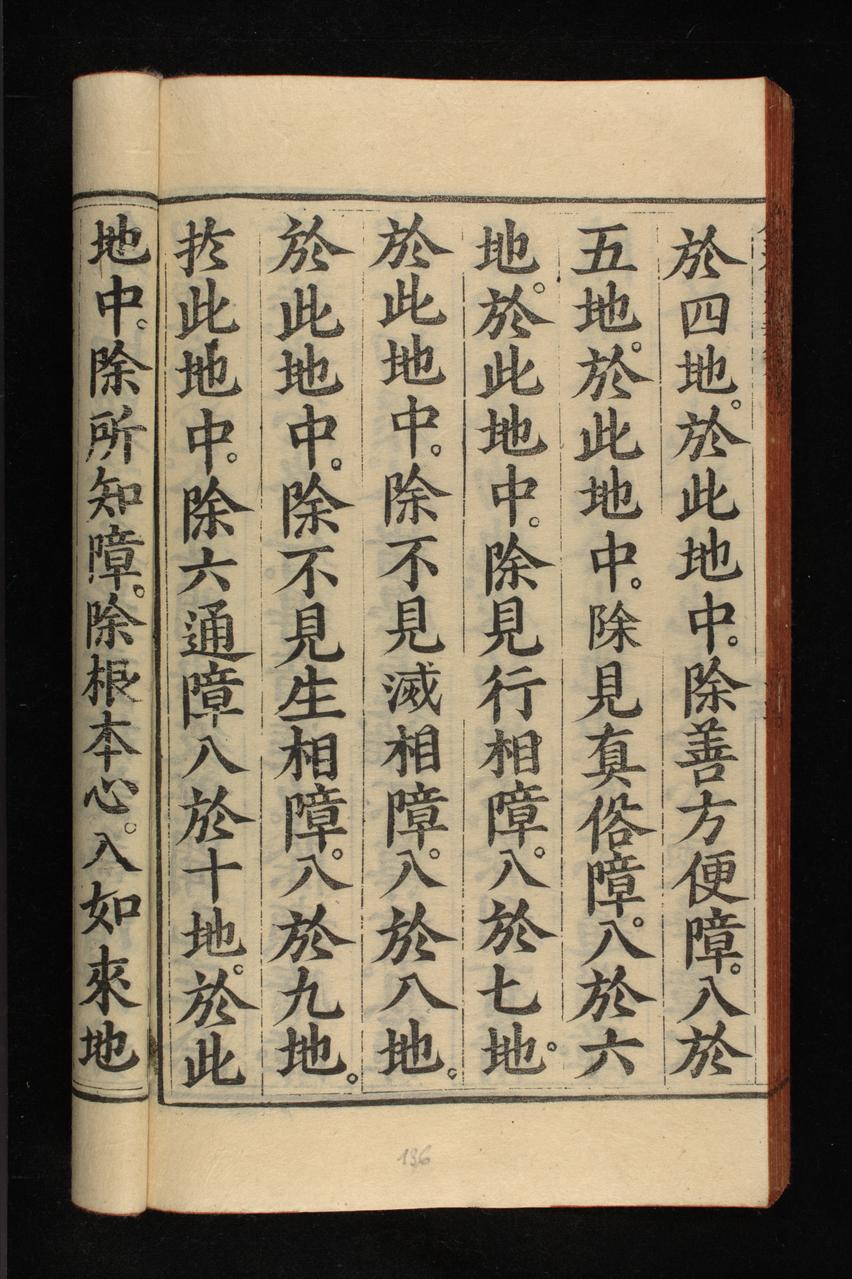 於四地。於此地中。除善方便障。入於
五地。於此地中。除見真俗障。入於六
地。於此地中。除見行相障。入於七地。
於此地中。除不見滅相障。入於八地。
於此地中。除不見生相障。入於九地。
於此地中。除六通障入於十地。於此
地中。除所知障。除根本心。入如來地
136